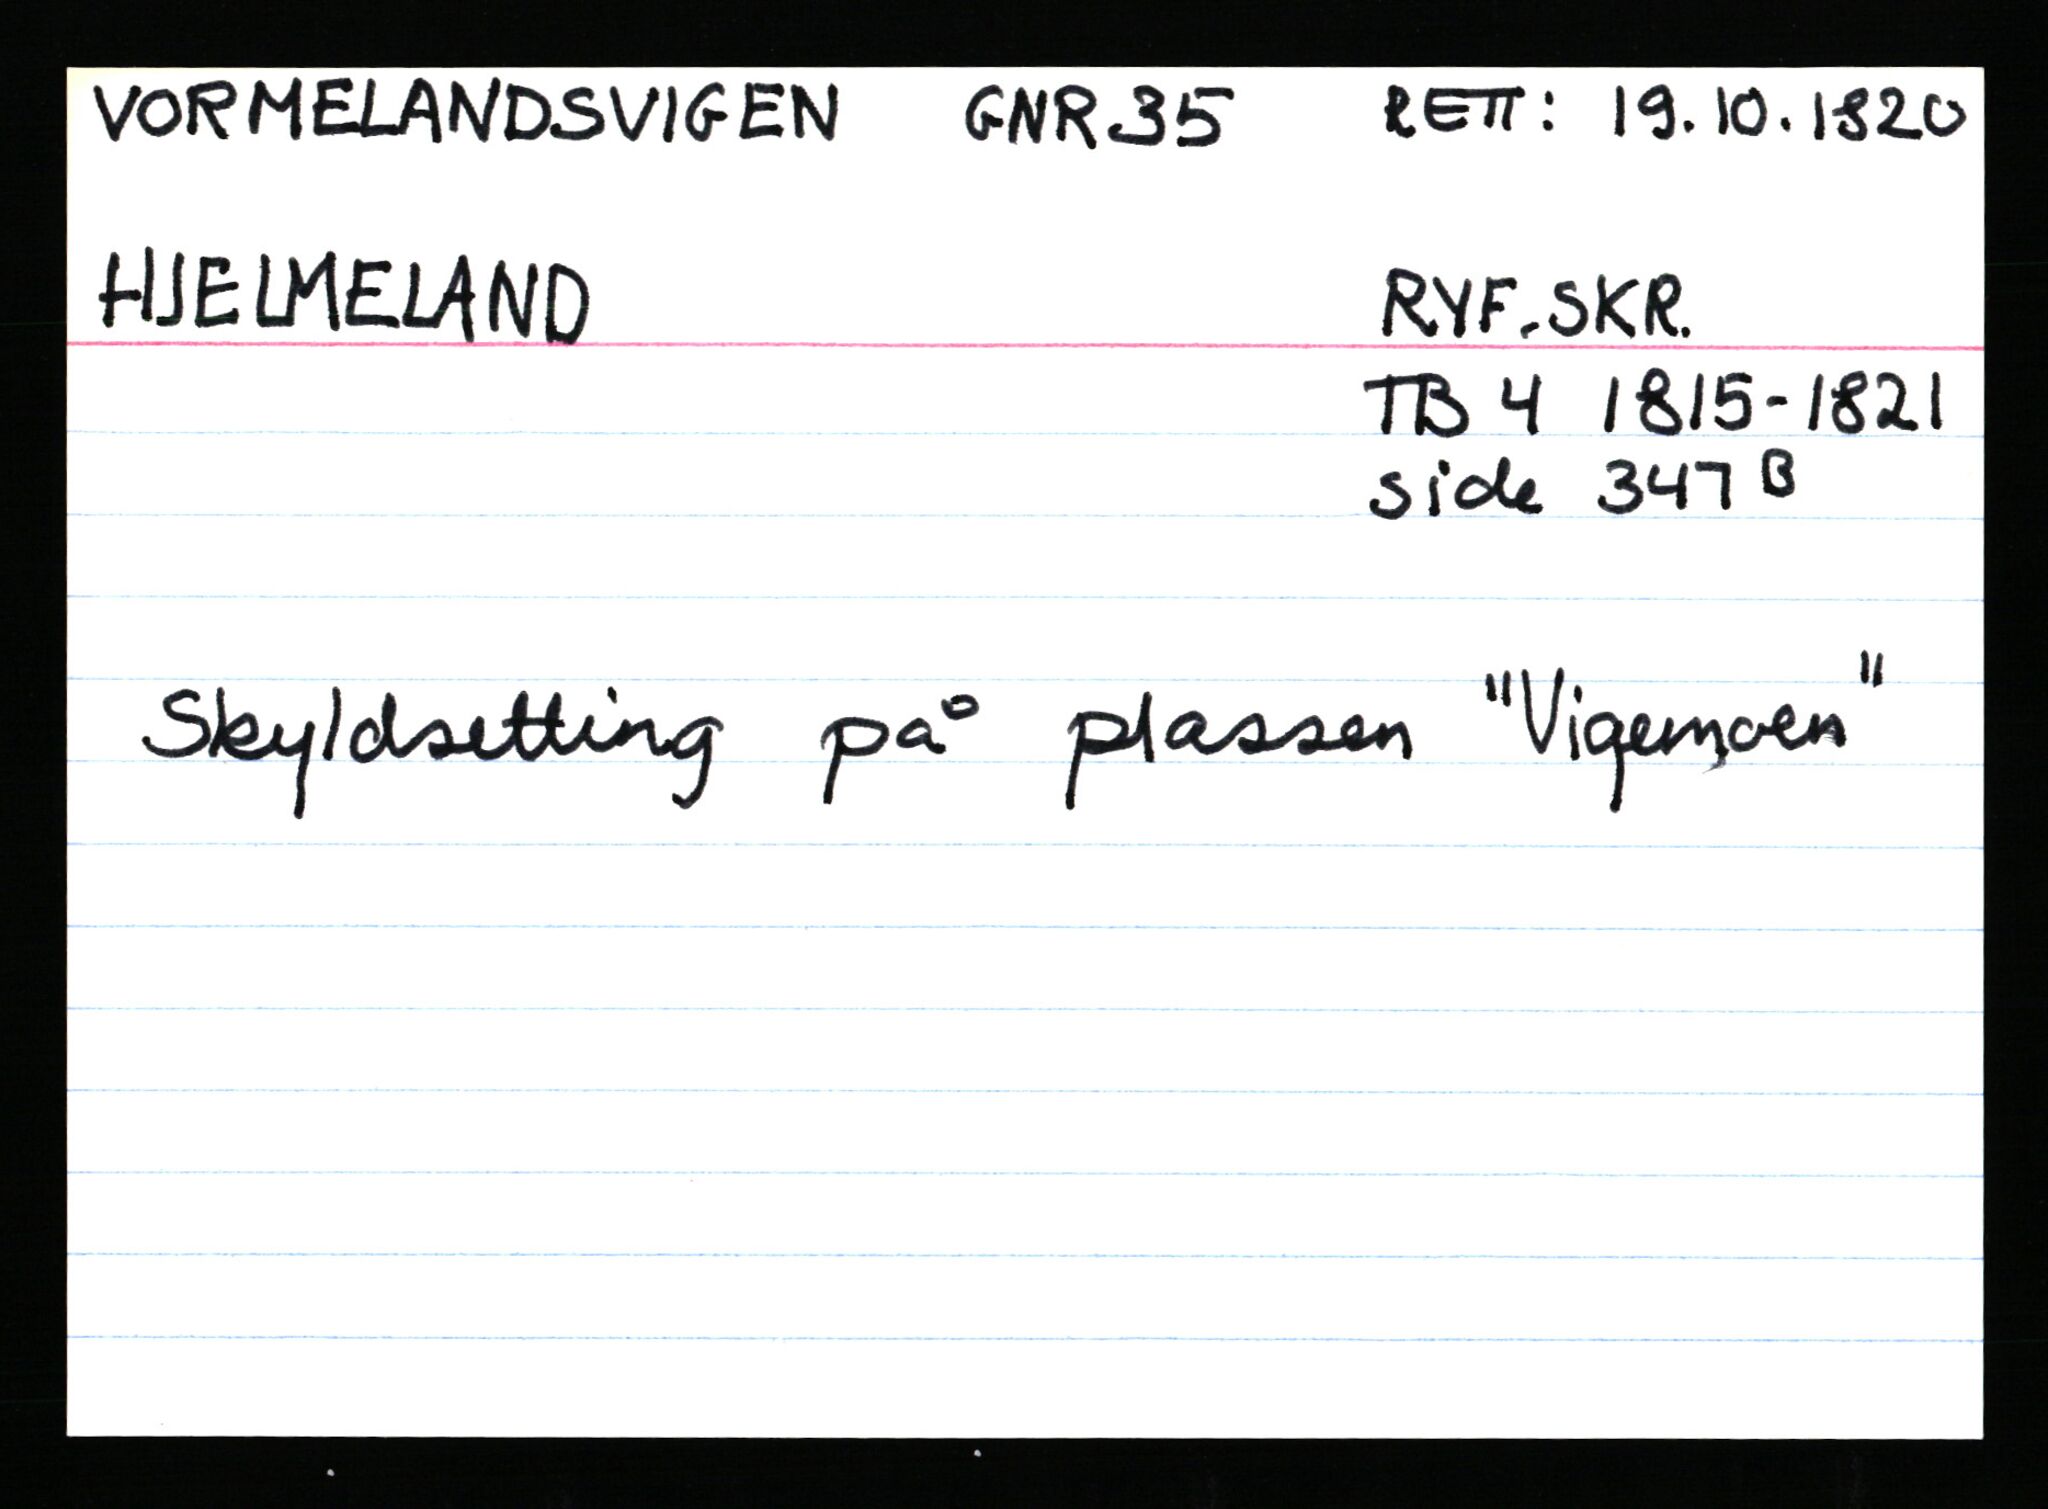 VORMELANDSVIGEN GNR.35 RETT: 19.10.1820
HJELMELAND RYF.SKR.
TB 4 1815-1821
side 347 B
Skyldsetting på plassen "Vigemoen"